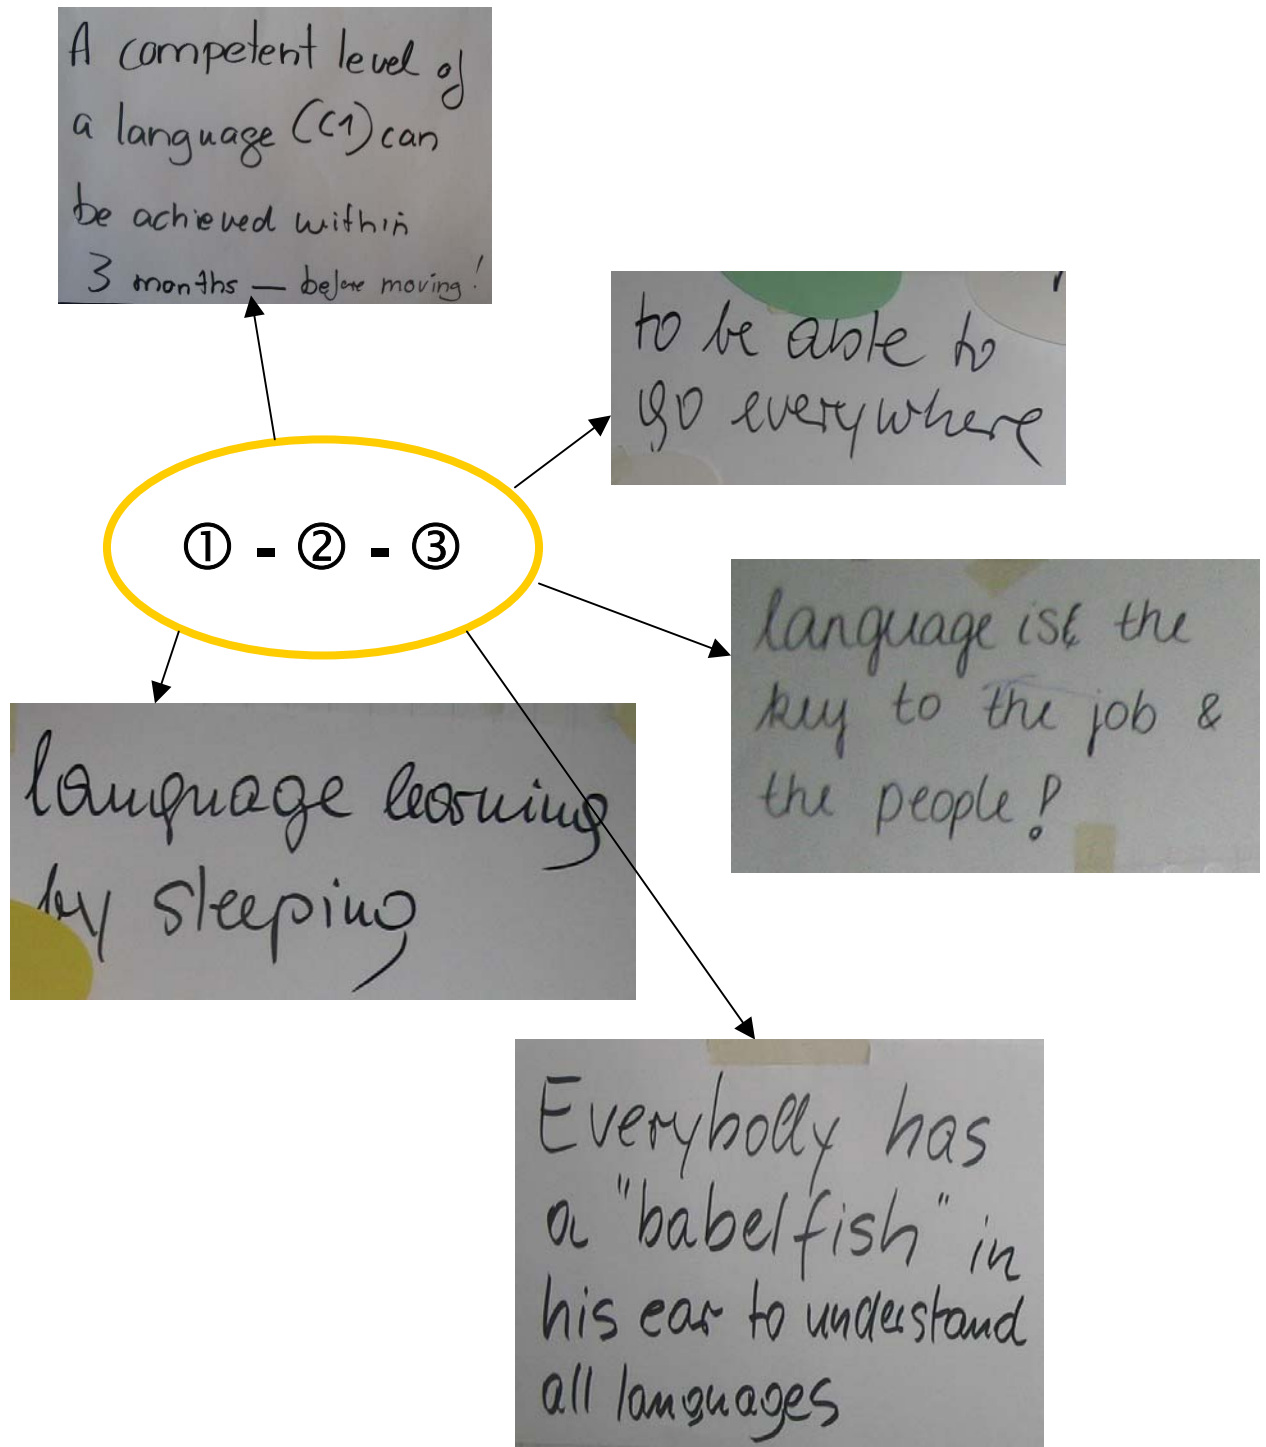 A competent level of
a language (C1) can
be achieved within
3 months — before moving!
to be able to
go everywhere
① - ② - ③
language is the
key to the job &
the people!
language learning
by sleeping
Everybody has
a "babelfish" in
his ear to understand
all languages